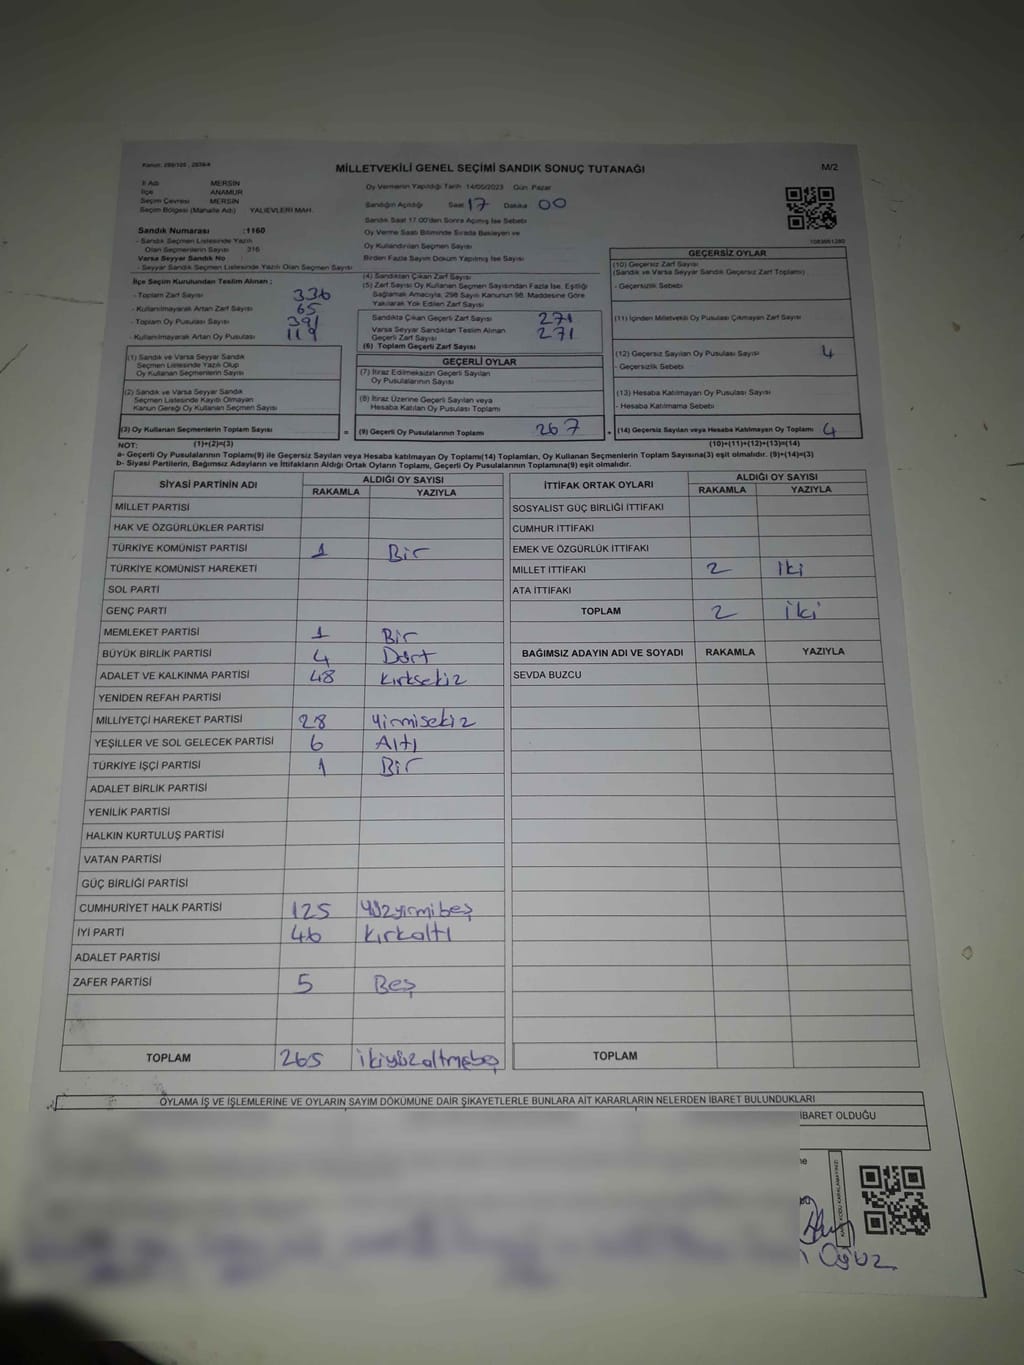 Kanun: 298/105 , 2839/4
MİLLETVEKİLİ GENEL SEÇİMİ SANDIK SONUÇ TUTANAĞI
M/2
İl Adı MERSİN
İlçe ANAMUR
Seçim Çevresi MERSİN
Seçim Bölgesi (Mahalle Adı) YALIEVLERİ MAH.
Sandık Numarası :1160
- Sandık Seçmen Listesinde Yazılı
Olan Seçmenlerin Sayısı 316
Varsa Seyyar Sandık No
- Seyyar Sandık Seçmen Listesinde Yazılı Olan Seçmen Sayısı
İlçe Seçim Kurulundan Teslim Alınan ;
- Toplam Zarf Sayısı 336
- Kullanılmayarak Artan Zarf Sayısı 65
- Toplam Oy Pusulası Sayısı 391
- Kullanılmayarak Artan Oy Pusulası 119
(1) Sandık ve Varsa Seyyar Sandık
Seçmen Listesinde Yazılı Olup
Oy Kullanan Seçmenlerin Sayısı
(2) Sandık ve Varsa Seyyar Sandık
Seçmen Listesinde Kayıtlı Olmayan
Kanun Gereği Oy Kullanan Seçmen Sayısı
(3) Oy Kullanan Seçmenlerin Toplam Sayısı
Oy Vermenin Yapıldığı Tarih 14/05/2023 Gün Pazar
Sandığın Açıldığı Saat 17 Dakika 00
Sandık Saat 17.00'den Sonra Açılmış İse Sebebi
Oy Verme Saati Bitiminde Sırada Bekleyen ve
Oy Kullandırılan Seçmen Sayısı
Birden Fazla Sayım Döküm Yapılmış İse Sayısı
(4) Sandıktan Çıkan Zarf Sayısı
(5) Zarf Sayısı Oy Kullanan Seçmen Sayısından Fazla İse, Eşitliği
Sağlamak Amacıyla, 298 Sayılı Kanunun 98. Maddesine Göre
Yakılarak Yok Edilen Zarf Sayısı
Sandıkta Çıkan Geçerli Zarf Sayısı 271
Varsa Seyyar Sandıktan Teslim Alınan
Geçerli Zarf Sayısı 271
(6) Toplam Geçerli Zarf Sayısı
GEÇERLİ OYLAR
(7) İtiraz Edilmeksizin Geçerli Sayılan
Oy Pusulalarının Sayısı
(8) İtiraz Üzerine Geçerli Sayılan veya
Hesaba Katılan Oy Pusulası Toplamı
= (9) Geçerli Oy Pusulalarının Toplamı 267 +
1083651280
GEÇERSİZ OYLAR
(10) Geçersiz Zarf Sayısı
(Sandık ve Varsa Seyyar Sandık Geçersiz Zarf Toplamı)
- Geçersizlik Sebebi
(11) İçinden Milletvekili Oy Pusulası Çıkmayan Zarf Sayısı
(12) Geçersiz Sayılan Oy Pusulası Sayısı 4
- Geçersizlik Sebebi
(13) Hesaba Katılmayan Oy Pusulası Sayısı
- Hesaba Katılmama Sebebi
(14) Geçersiz Sayılan veya Hesaba Katılmayan Oy Toplamı 4
NOT: (1)+(2)=(3) (10)+(11)+(12)+(13)=(14)
a- Geçerli Oy Pusulalarının Toplamı(9) ile Geçersiz Sayılan veya Hesaba katılmayan Oy Toplamı(14) Toplamları, Oy Kullanan Seçmenlerin Toplam Sayısına(3) eşit olmalıdır. (9)+(14)=(3)
b- Siyasi Partilerin, Bağımsız Adayların ve İttifakların Aldığı Ortak Oyların Toplamı, Geçerli Oy Pusulalarının Toplamına(9) eşit olmalıdır.
SİYASİ PARTİNİN ADI ALDIĞI OY SAYISI
RAKAMLA YAZIYLA
MİLLET PARTİSİ
HAK VE ÖZGÜRLÜKLER PARTİSİ
TÜRKİYE KOMÜNİST PARTİSİ 1 Bir
TÜRKİYE KOMÜNİST HAREKETİ
SOL PARTİ
GENÇ PARTİ
MEMLEKET PARTİSİ 1 Bir
BÜYÜK BİRLİK PARTİSİ 4 Dört
ADALET VE KALKINMA PARTİSİ 48 kırksekiz
YENİDEN REFAH PARTİSİ
MİLLİYETÇİ HAREKET PARTİSİ 28 yirmisekiz
YEŞİLLER VE SOL GELECEK PARTİSİ 6 Altı
TÜRKİYE İŞÇİ PARTİSİ 1 Bir
ADALET BİRLİK PARTİSİ
YENİLİK PARTİSİ
HALKIN KURTULUŞ PARTİSİ
VATAN PARTİSİ
GÜÇ BİRLİĞİ PARTİSİ
CUMHURİYET HALK PARTİSİ 125 yüzyirmibeş
İYİ PARTİ 46 kırkaltı
ADALET PARTİSİ
ZAFER PARTİSİ 5 Beş
TOPLAM 265 ikiyüzaltmışbeş
İTTİFAK ORTAK OYLARI ALDIĞI OY SAYISI
RAKAMLA YAZIYLA
SOSYALIST GÜÇ BİRLİĞİ İTTİFAKI
CUMHUR İTTİFAKI
EMEK VE ÖZGÜRLÜK İTTİFAKI
MİLLET İTTİFAKI 2 iki
ATA İTTİFAKI
TOPLAM 2 iki
BAĞIMSIZ ADAYIN ADI VE SOYADI RAKAMLA YAZIYLA
SEVDA BUZCU
TOPLAM
OYLAMA İŞ VE İŞLEMLERİNE VE OYLARIN SAYIM DÖKÜMÜNE DAİR ŞİKAYETLERLE BUNLARA AİT KARARLARIN NELERDEN İBARET BULUNDUKLARI
İBARET OLDUĞU
Oğuz